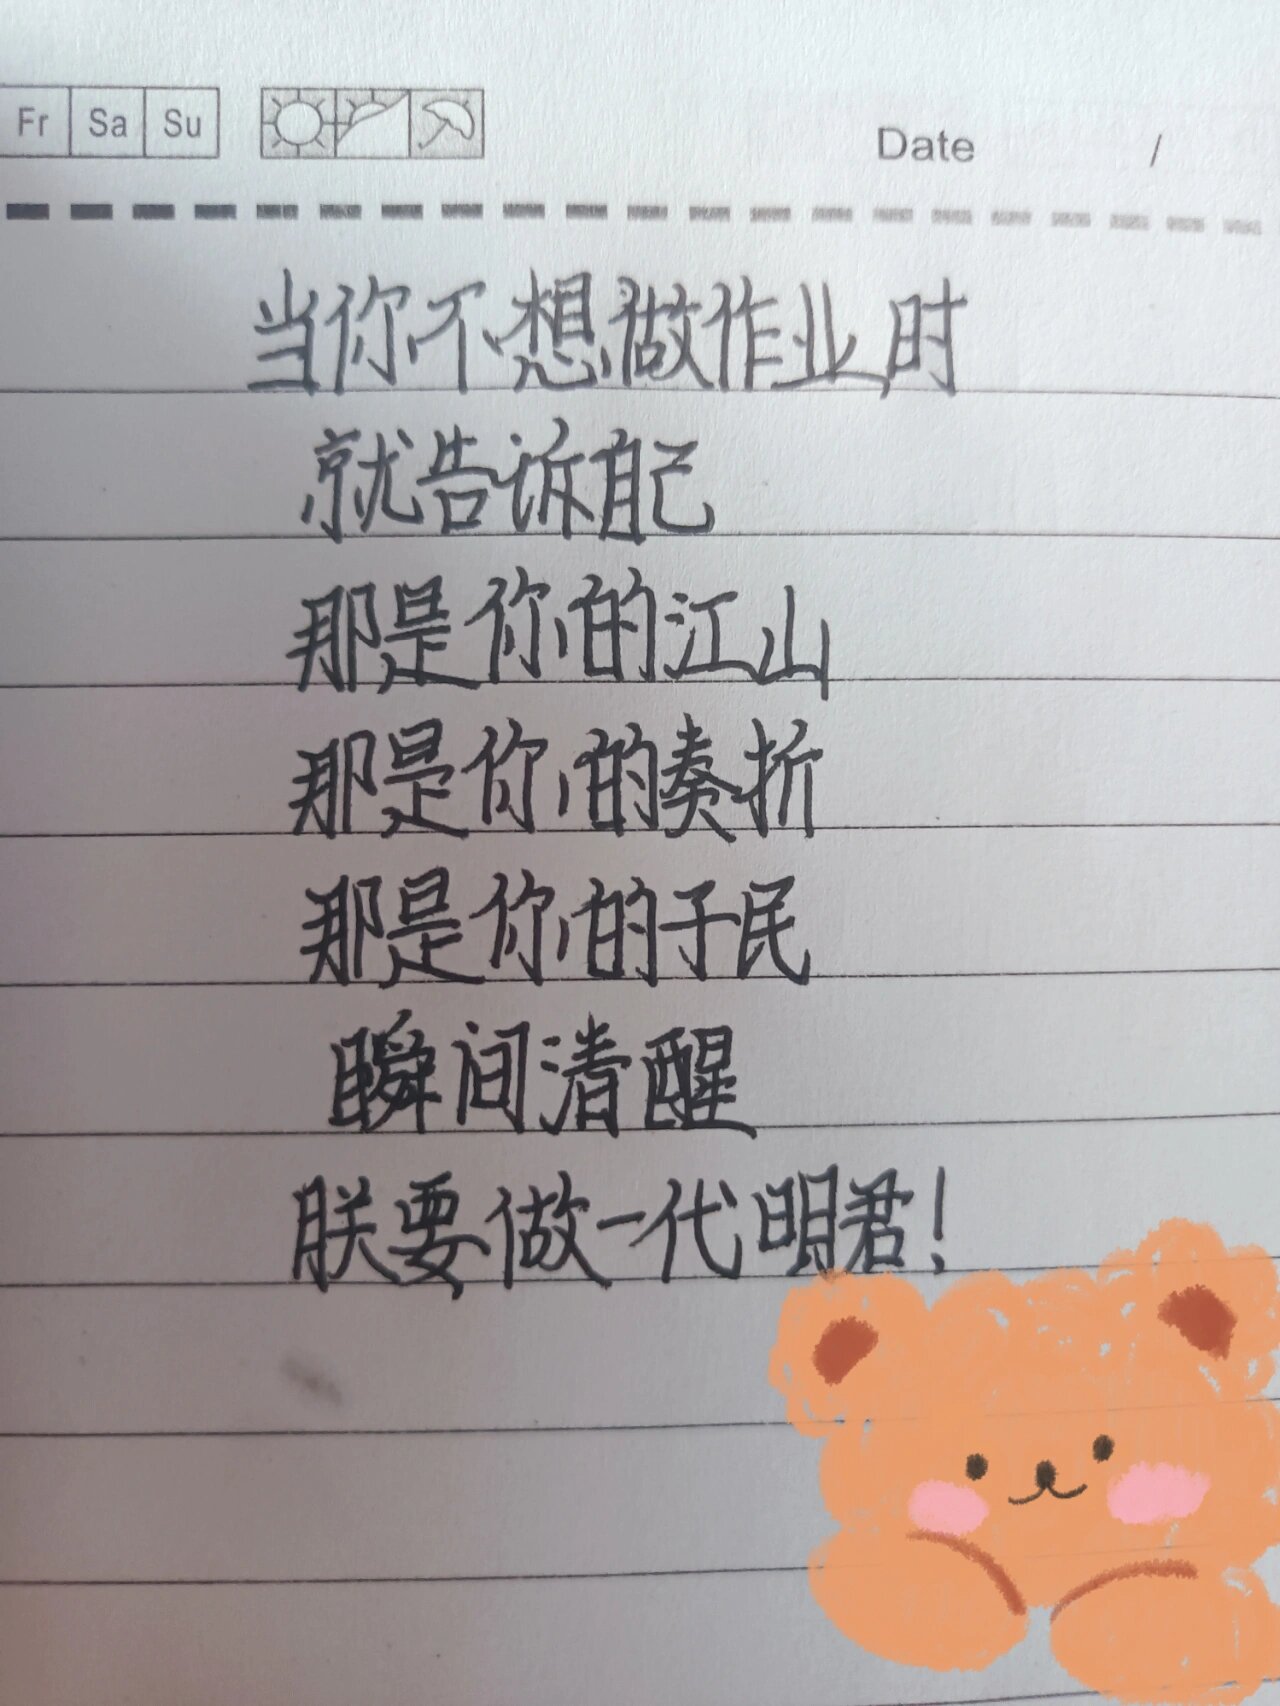 Fr Sa Su Date /
当你不想做作业时
就告诉自己
那是你的江山
那是你的奏折
那是你的子民
瞬间清醒
朕要做一代明君！